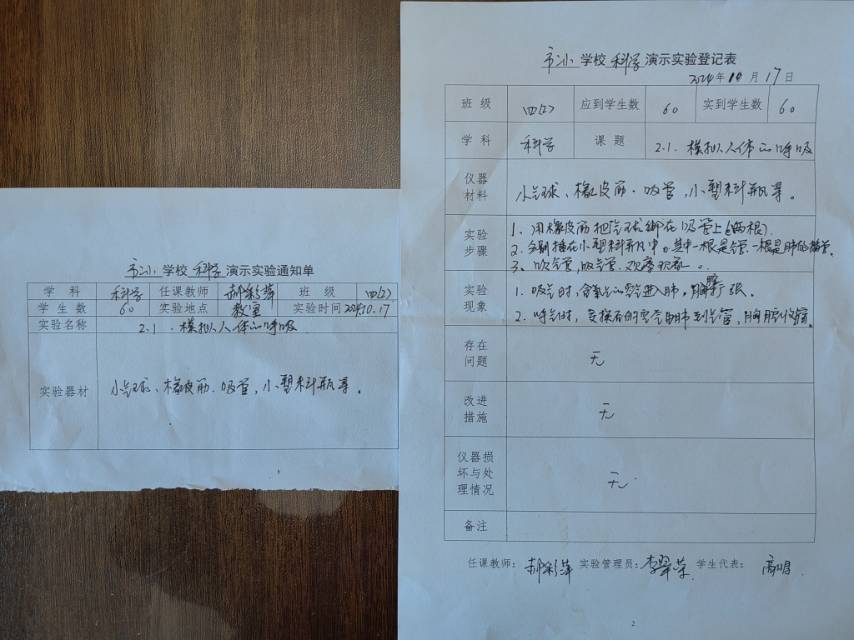 市小 学校 科学 演示实验通知单
学 科 科学 任课教师 郝彩萍 班 级 四(2)
学 生 数 60 实验地点 教室 实验时间 2024.10.17
实验名称 2.1.模拟人体的呼吸
实验器材 小气球、橡皮筋、吸管,小塑料瓶等。
市小 学校 科学 演示实验登记表
2024年10月17日
班 级 四(2) 应到学生数 60 实到学生数 60
学 科 科学 课 题 2.1.模拟人体的呼吸
仪器
材料
小气球、橡皮筋、吸管,小塑料瓶等。
实验
步骤
1、用橡皮筋把气球绑在吸管上(两根).
2、分别插在小塑料瓶中。其中一根是气管,一根是肺的
3、吹气管,吸气管,观察现象。
实验
现象
1、吸气时,含氧的空气进入肺,胸扩张。
2、呼气时,交换后的空气由肺到气管,胸腔收缩。
存在
问题
无
改进
措施
无
仪器损
坏与处
理情况
无
备注
任课教师: 郝彩萍 实验管理员: 李翠荣 学生代表: 高明
2